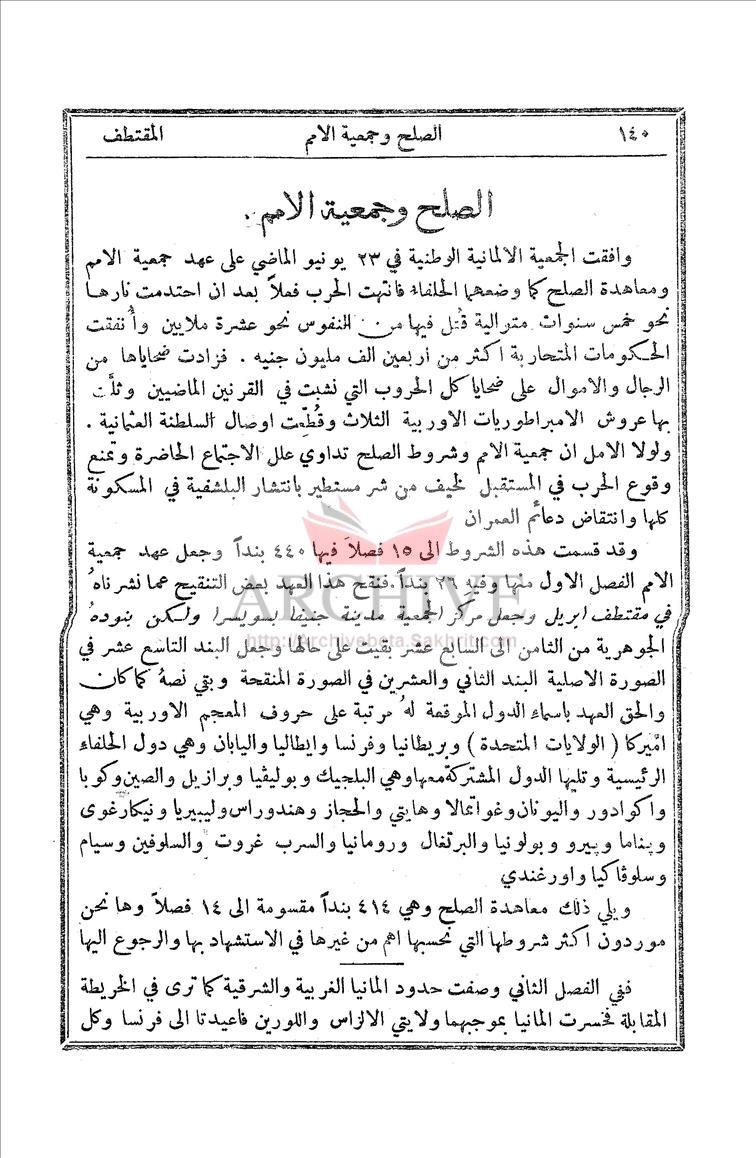 ١٤٠ الصلح وجمعية الامم المقتطف
الصلح وجمعية الامم
وافقت الجمعية الالمانية الوطنية في ٢٣ يونيو الماضي على عهد جمعية الامم
ومعاهدة الصلح كما وضعهما الحلفاء فانتهت الحرب فعلاً بعد ان احتدمت نارها
نحو خمس سنوات متوالية قُتل فيها من النفوس نحو عشرة ملايين وأُنفقت
الحكومات المتحاربة اكثر من اربعين الف مليون جنيه . فزادت ضحاياها من
الرجال والاموال على ضحايا كل الحروب التي نشبت في القرنين الماضيين وثلَّت
بها عروش الامبراطوريات الاوربية الثلاث وقُطِّعت اوصال السلطنة العثمانية .
ولولا الامل ان جمعية الامم وشروط الصلح تداوي علل الاجتماع الحاضرة وتمنع
وقوع الحرب في المستقبل لخيف من شر مستطير بانتشار البلشفية في المسكونة
كلها وانتقاض دعائم العمران
وقد قسمت هذه الشروط الى ١٥ فصلاً فيها ٤٤٠ بنداً وجعل عهد جمعية
الامم الفصل الاول منها وفيه ٢٦ بنداً فنقح هذا العهد بعض التنقيح عما نشرناهُ
في مقتطف ابريل وجعل مركز الجمعية مدينة جنيفا بسويسرا ولكن بنودهُ
الجوهرية من الثامن الى السابع عشر بقيت على حالها وجعل البند التاسع عشر في
الصورة الاصلية البند الثاني والعشرين في الصورة المنقحة وبقي نصهُ كما كان
والحق العهد باسماء الدول الموقعة لهُ مرتبة على حروف المعجم الاوربية وهي
اميركا ( الولايات المتحدة ) وبريطانيا وفرنسا وايطاليا واليابان وهي دول الحلفاء
الرئيسية وتليها الدول المشتركة معها وهي البلجيك وبوليڤيا وبرازيل والصين وكوبا
واكوادور واليونان وغواتمالا وهايتي والحجاز وهندوراس وليبيريا ونيكارغوى
وپناما وپيرو وبولونيا والبرتغال ورومانيا والسرب غروت والسلوفين وسيام
وسلوڤاكيا واورغندي
ويلي ذلك معاهدة الصلح وهي ٤١٤ بنداً مقسومة الى ١٤ فصلاً وها نحن
موردون اكثر شروطها التي نحسبها اهم من غيرها في الاستشهاد بها والرجوع اليها
ففي الفصل الثاني وصفت حدود المانيا الغربية والشرقية كما ترى في الخريطة
المقابلة فخسرت المانيا بموجبهما ولايتي الالزاس واللورين فاعيدتا الى فرنسا وكل
ARCHIVE
http://Archivebeta.Sakhrit.com